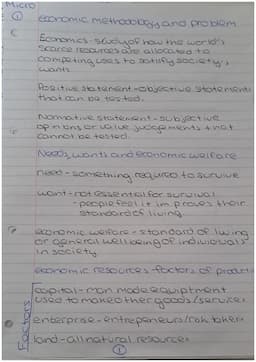 Micro
① economic methodology and problem
Economics - study of how the world's
scarce resources are allocated to
competing uses to satisfy society's
wants.
Positive statement - objective statements
that can be tested.
Normative statement - subjective
opinions or value judgements that
cannot be tested.
Needs, wants and economic welfare
need - something required to survive
want - not essential for survival
- people feel it improves their
standard of living.
economic welfare - standard of living
or general wellbeing of individuals
in society.
economic resources - factors of
Factors
capital - man made equiptment
used to make other goods/services
enterprise - entrepeneurs/risk takers
land - all natural resources
①